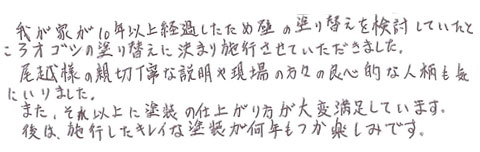 我が家が10年以上経過したため壁の塗り替えを検討していたと
ころオゴツの塗り替えに決まり施行させていただきました。
尾越様の親切丁寧な説明や現場の方々の良心的な人柄も気
にいりました。
また、それ以上に塗装の仕上がり方が大変満足しています。
後は、施行したキレイな塗装が何年もつか楽しみです。